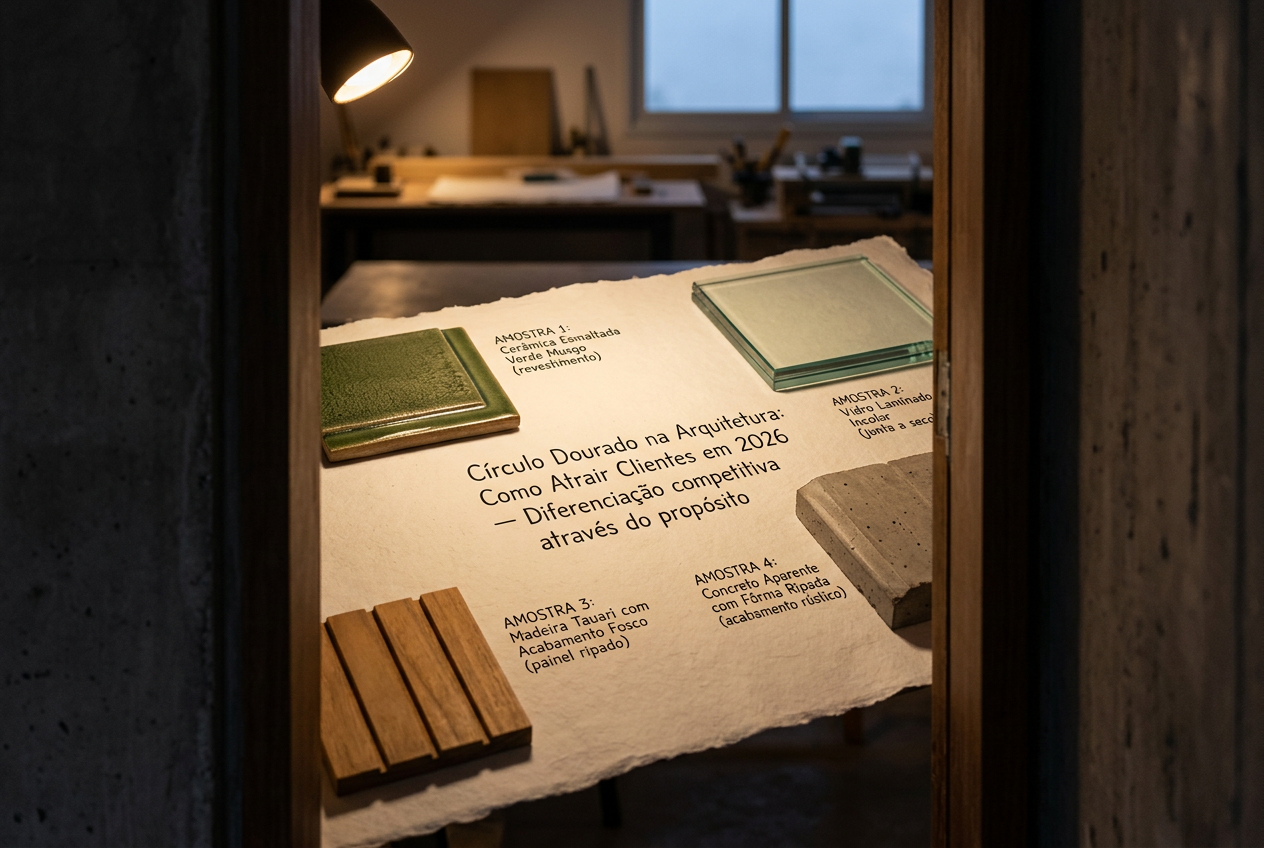 AMOSTRA 1:
Cerâmica Esmaltada
Verde Musgo
(revestimento)
AMOSTRA 2:
Vidro Laminado
Incolor
(Junta a seco)
Círculo Dourado na Arquitetura:
Como Atrair Clientes em 2026
— Diferenciação competitiva
através do propósito
AMOSTRA 3:
Madeira Tauari com
Acabamento Fosco
(painel ripado)
AMOSTRA 4:
Concreto Aparente
com Fôrma Ripada
(acabamento rústico)